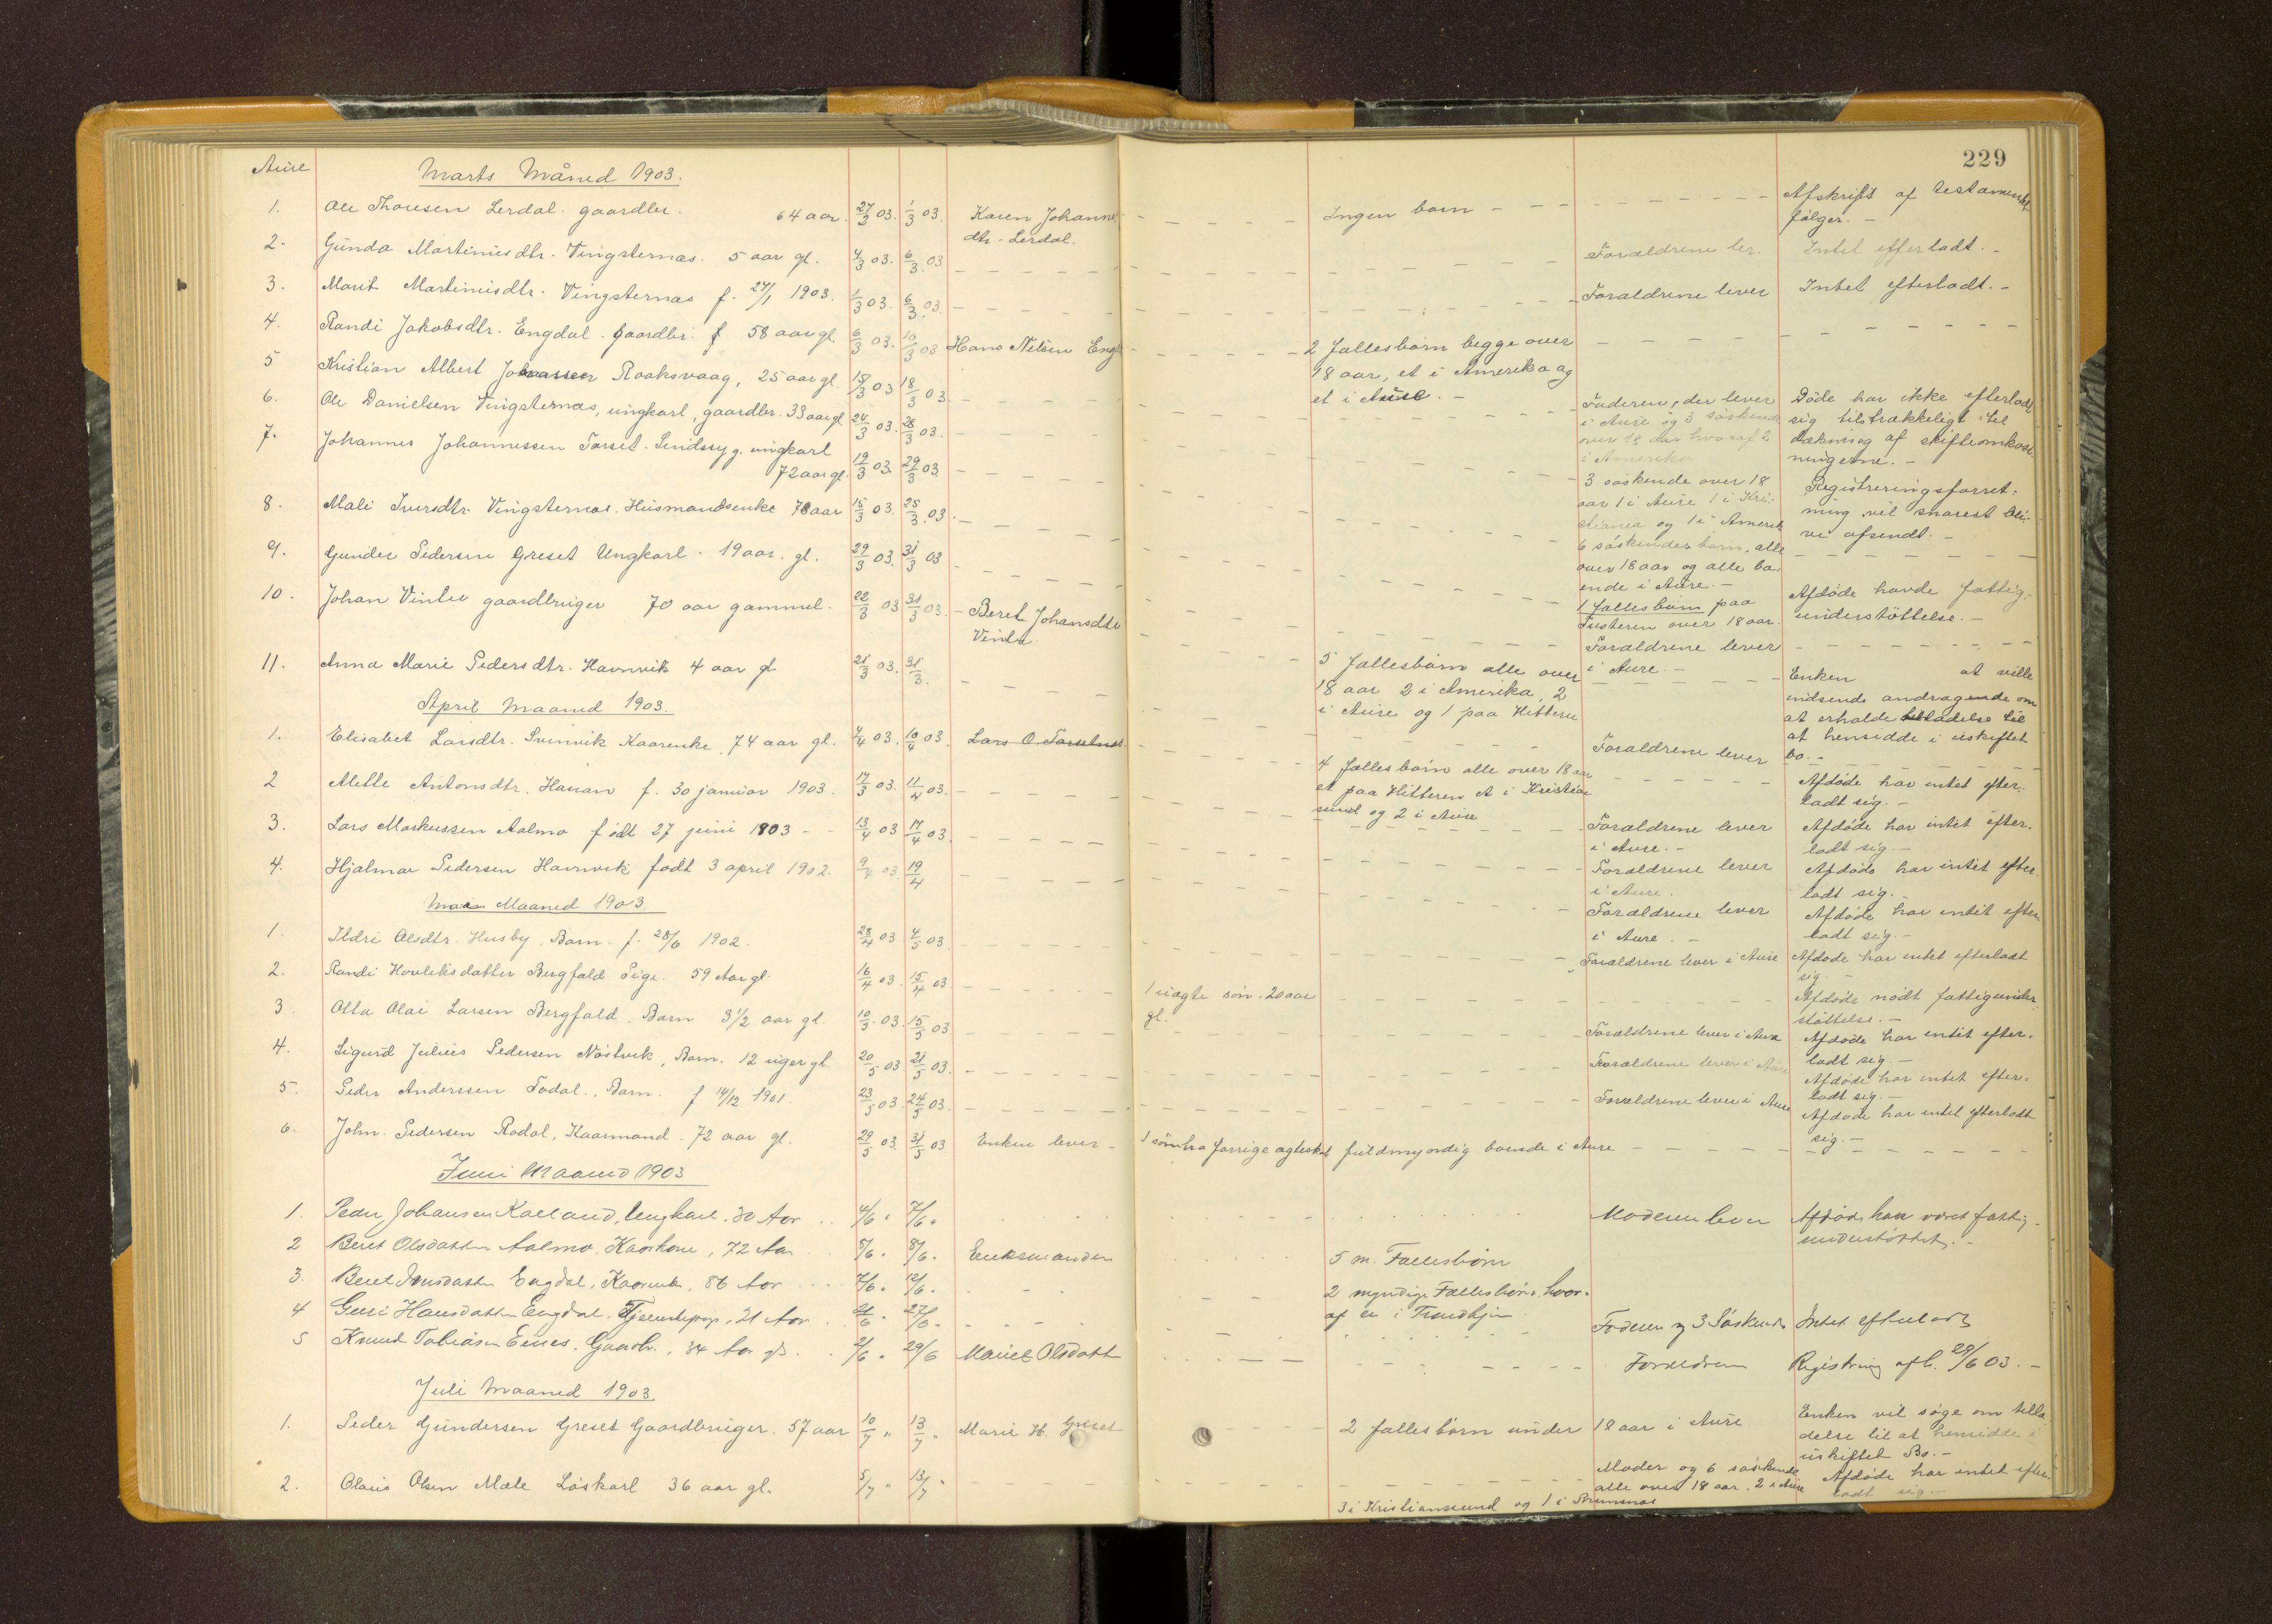 229
Aure
Marts Måned 1903.
1. Ole Thoresen Lerdal. gaardbr.
64 aar. 27/2 03. 1/3 03. Karen Johanne
dtr. Lerdal.
2. Gunda Martinusdtr. Vingsternæs. 5 aar gl. 4/3 03. 6/3 03
3. Marit Martinusdtr. Vingsternæs f. 27/1 1903. 1/3 03. 6/3 03.
4. Randi Jakobsdtr. Engdal. gaardbr. f 58 aar gl. 6/3 03. 10/3 03 Hans Nilsen Engd
5 Kristian Albert Roaksvaag, 25 aar gl. 18/3 03 18/3 03.
6. Ole Danielsen Vingsternæs, ungkarl, gaardbr. 33 aar gl. 24/3 03. 28/3 03.
7. Johannes Johannessen Torset. ungkarl
72 aar gl. 19/3 03 29/3 03
8. Mali Iversdtr. Vingsternæs. Husmandsenke 78 aar 15/3 03. 25/3 03.
9. Gunder Pedersen Greset Ungkarl. 19 aar. gl. 29/3 03. 31/3 03
10. Johan Vintre gaardbruger 70 aar gammel. 22/3 03 31/3 03. Beret Johansdtr
11. Anna Marie Pedersdtr. Havnvik 4 aar gl 21/3 03. 31/3.
April Maaned 1903.
1. Elisabet Larsdtr. Svinvik Kaarenke, 74 aar gl. 4/4 03. 10/4 03. Lars O.
2 Mette Antonsdtr. f. 30 januar 1903. 17/3 03. 11/4 03.
3. Lars Markussen Aalmo født 27 juni 1903 13/4 03 17/4 03.
4. Hjalmar Pedersen Havnvik født 3 april 1902. 9/4 03. 19/4
Maaned 1903.
1. Ildri Olsdtr. Husby. Barn. f. 28/6 1902. 28/4 03 4/5 03.
2. Randi Bergfald Pige. 59 Aar gl. 16/4 03. 15/4 03
3. Olai Larsen Bergfald. Barn 3 1/2 aar gl. 10/5 03. 15/5 03
4. Sigurd Julius Pedersen Nöstvik, Barn. 12 uger gl. 20/5 03 21/5 03.
5. Peder Anderssen Todal. Barn. f 14/12 1901. 23/5 03. 24/5 03.
6. John Pedersen Rodal, Kaarmand. 72 aar gl. 29/5 03. 31/5 03. Enken lever
Juni Maaned 1903
1. Peder Johansen Ungkarl. 30 Aar 4/6 7/6
2 Beret Olsdatter Aalmo. Kaarkone, 72 Aar 5/6 8/6 Enkemanden
3. Beret Engdal, Kaarenke, 86 Aar 7/6 12/6
4 Hansdatter Engdal. 21 Aar 21/6 27/6
5 Knud Tobiasen Eines. Gaardbr., 34 Aar gl. 21/6 29/6 Marit Olsdatter
Juli Maaned 1903.
1. Peder Gundersen Greset Gaardbruger. 57 aar 10/7 " 13/7 " Marie H. Greset
2. Olaus Olsen Mæle Löskarl 36 aar gl. 5/7 " 13/7 "
Ingen barn
Afskrift af Testamentet
følger.
Forældrene lev. Intet efterladt.
Forældrene lever Intet efterladt.
2 fællesbørn begge over
18 aar, et i Amerika og
et i Aure.
Faderen, der lever
i Aure og 3 söskende
over 18 aar hvoraf 2
i Amerika
Døde har ikke efterladt
sig tilstrækkeligt til
dækning af skifteomkost
ningerne.
3 söskende over 18
aar 1 i Aure 1 i Kri-
stiania og 1 i Amerik
Registreringsforret-
ning vil snarest bli-
ve afsendt.
6 söskendes barn, alle
over 18 aar og alle bo-
ende i Aure.
1 fællesbarn paa
Tusteren over 18 aar.
Afdøde havde fattig-
understöttelse.
Forældrene lever
i Aure.
5 fællesbørn alle over
18 aar 2 i Amerika, 2
i Aure og 1 paa Hitteren
Enken at ville
indsende andragende om
at erholde tilladelse til
at hensidde i uskiftet
bo.
Forældrene lever
Afdøde har intet efter-
ladt sig.
4 fælles børn alle over 18 aar
et paa Hitteren et i Kristian
sund og 2 i Aure
Forældrene lever
i Aure.
Afdøde har intet efter-
ladt sig.
Forældrene lever
i Aure.
Afdøde har intet efter
ladt sig.
Forældrene lever
i Aure.
Afdøde har intet efter
ladt sig.
Forældrene lever i Aure
Afdøde har intet efterladt
sig.
1 uægte søn. 20 aar
gl.
Afdøde nødt fattigunder
støttelse.
Forældrene lever i Aure
Afdøde har intet efter-
ladt sig.
Forældrene lever i Aure
Afdøde har intet efter-
ladt sig.
Forældrene lever i Aure
Afdøde har intet efterladt
sig.
1 søn fra forrige ægteskab fuldmyndig boende i Aure
Moderen lever Afdøde har været fattig-
understöttet.
5 m. Fællesbörn
2 myndige Fællesbörn. hvor-
af en i Trondhjem
Faderen og 3 Söskende Intet efterladt
Forældrene Registrering afh. 29/6 03.
2 fællesbörn under 18 aar i Aure
Enken vil søge om tilla
delse til at hensidde i
uskiftet Bo.
Moder og 6 söskende
alle over 18 aar. 2 i Aure
3 i Kristiansund og 1 i
Afdøde har intet efter
ladt sig.